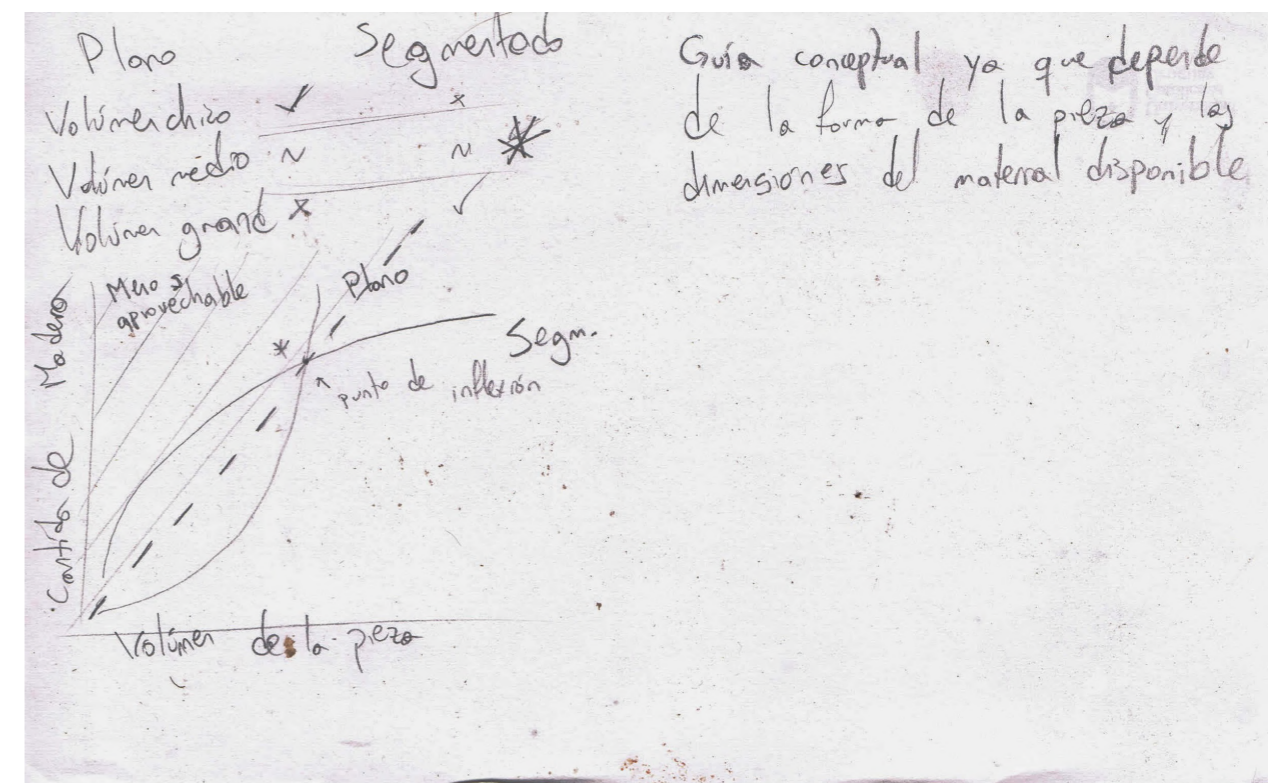 Plano Segmentado
Volúmen chico ✓ x
Volúmen medio ~ ~ *
Volúmen grande x ✓
Guía conceptual ya que depende
de la forma de la pieza y las
dimensiones del material disponible
Menos
aprovechable
Plano
Segm.
*
punto de inflexión
Cantidad de Madera
Volúmen de la pieza